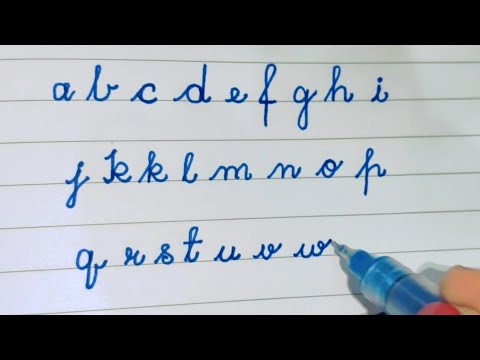 a b c d e f g h i
j k k l m n o p
q r s t u v w